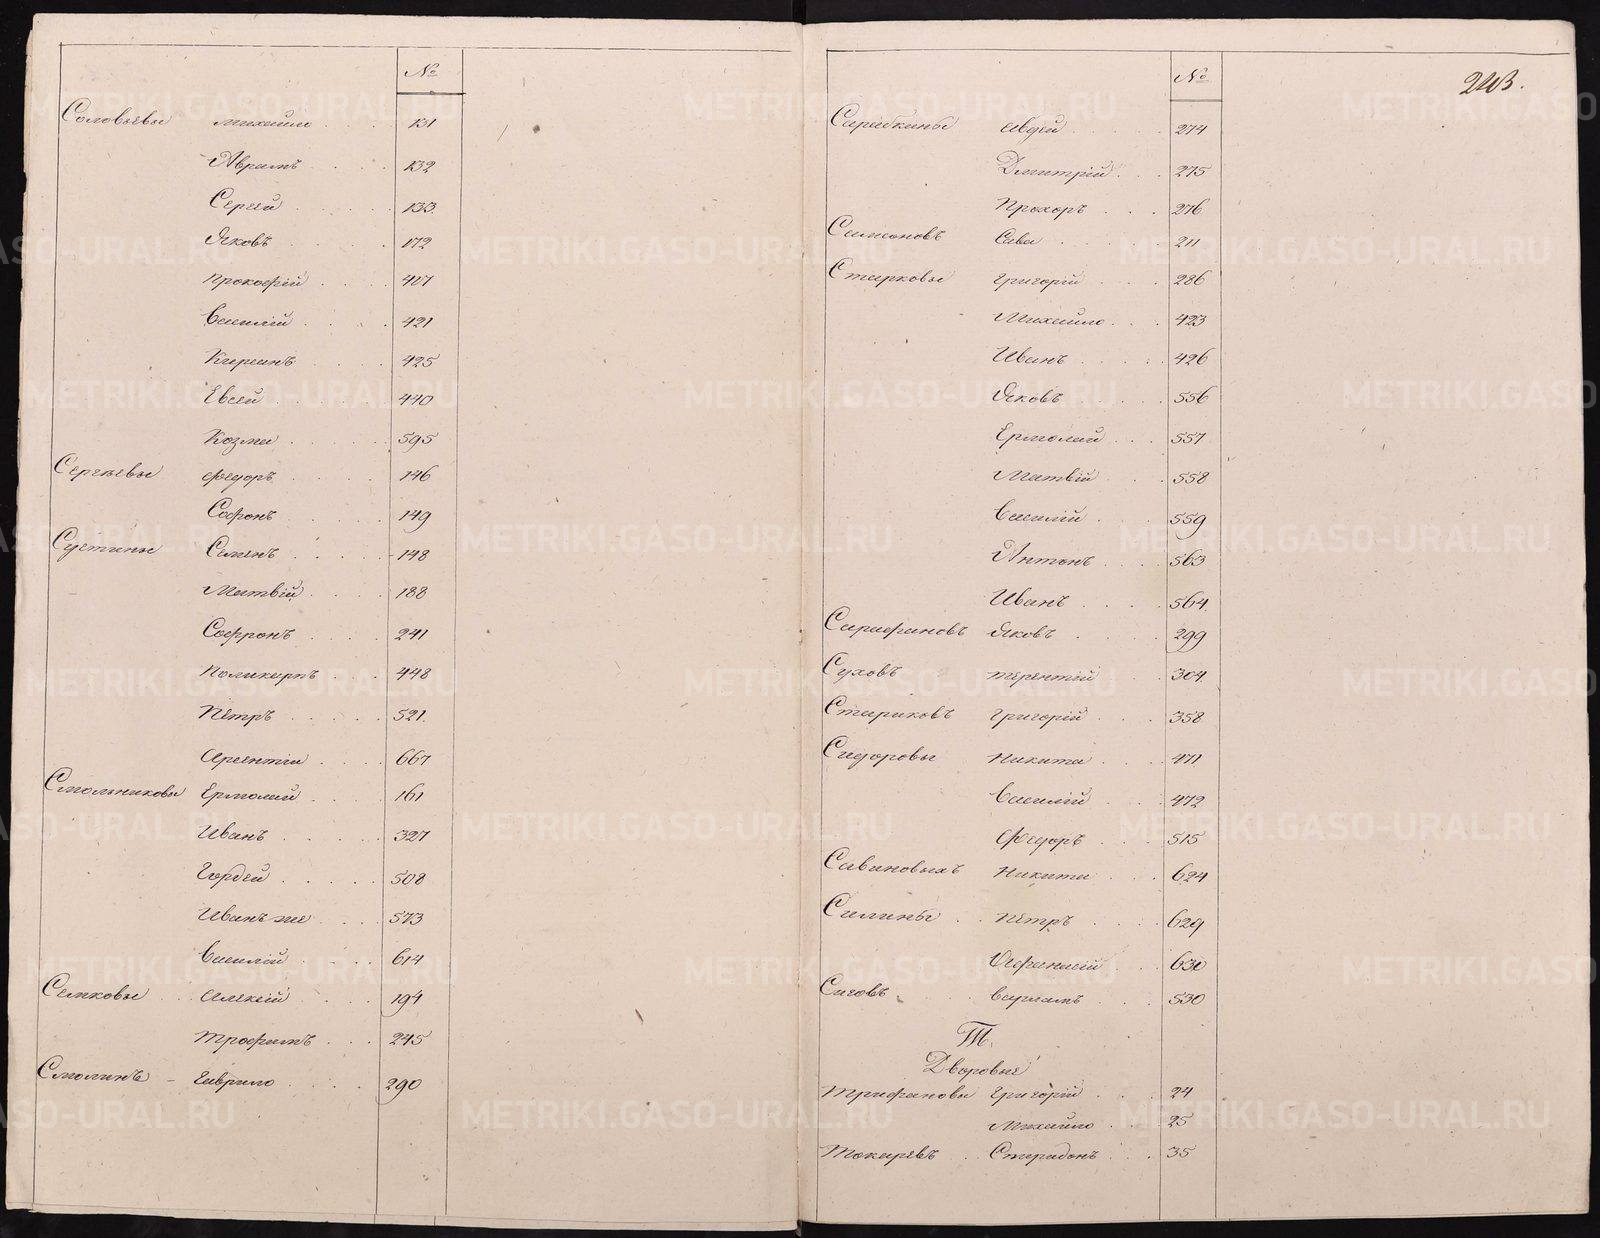 №
Соловьевы Михайло 131
Абрамъ 132
Сергей 133
Яковъ 172
Прокофій 407
Василій 421
Кирьанъ 425
Евсей 440
Козма 595
Сергѣевы Федоръ 146
Софонъ 149
Сустины Семенъ 148
Матвій 188
Софронъ 241
Поликарпъ 448
Петръ 521
667
Смольниковы Ермолай 161
Иванъ 327
Гордей 508
Иванъ же 573
Василій 614
Семковы Алексій 194
Трофимъ 245
Смолинъ Гаврило 290
№
243.
Сарабкины Авдей 274
Дмитрій 275
Прохоръ 276
Симеоновъ Сава 211
Старковы Григорій 286
Михайло 423
Иванъ 426
Яковъ 556
Ермолай 557
Матвій 558
Василій 559
Антонъ 563
Иванъ 564
Сарафановъ Яковъ 299
Суховъ Терентій 304
Стариковъ Григорій 358
Сидоровы Никита 471
Василій 472
Федоръ 515
Савиновыхъ Никита 624
Силины Петръ 629
Афанасій 630
Сиговъ Варламъ 530
Т.
Дворовые
Трифановы Григорій 24
Михайло 25
Токаревъ Спиридонъ 35
METRIKI.GASO-URAL.RU